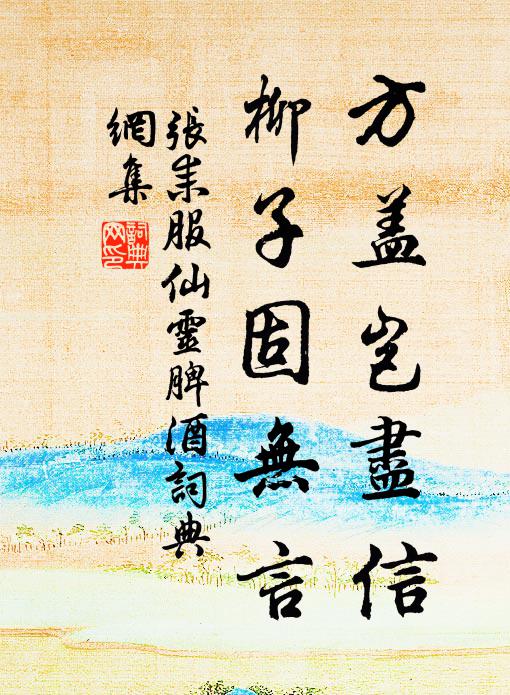 方盖岂盡信
柳子固無言
張耒服仙靈脾酒詞典
網集
詞典
网印